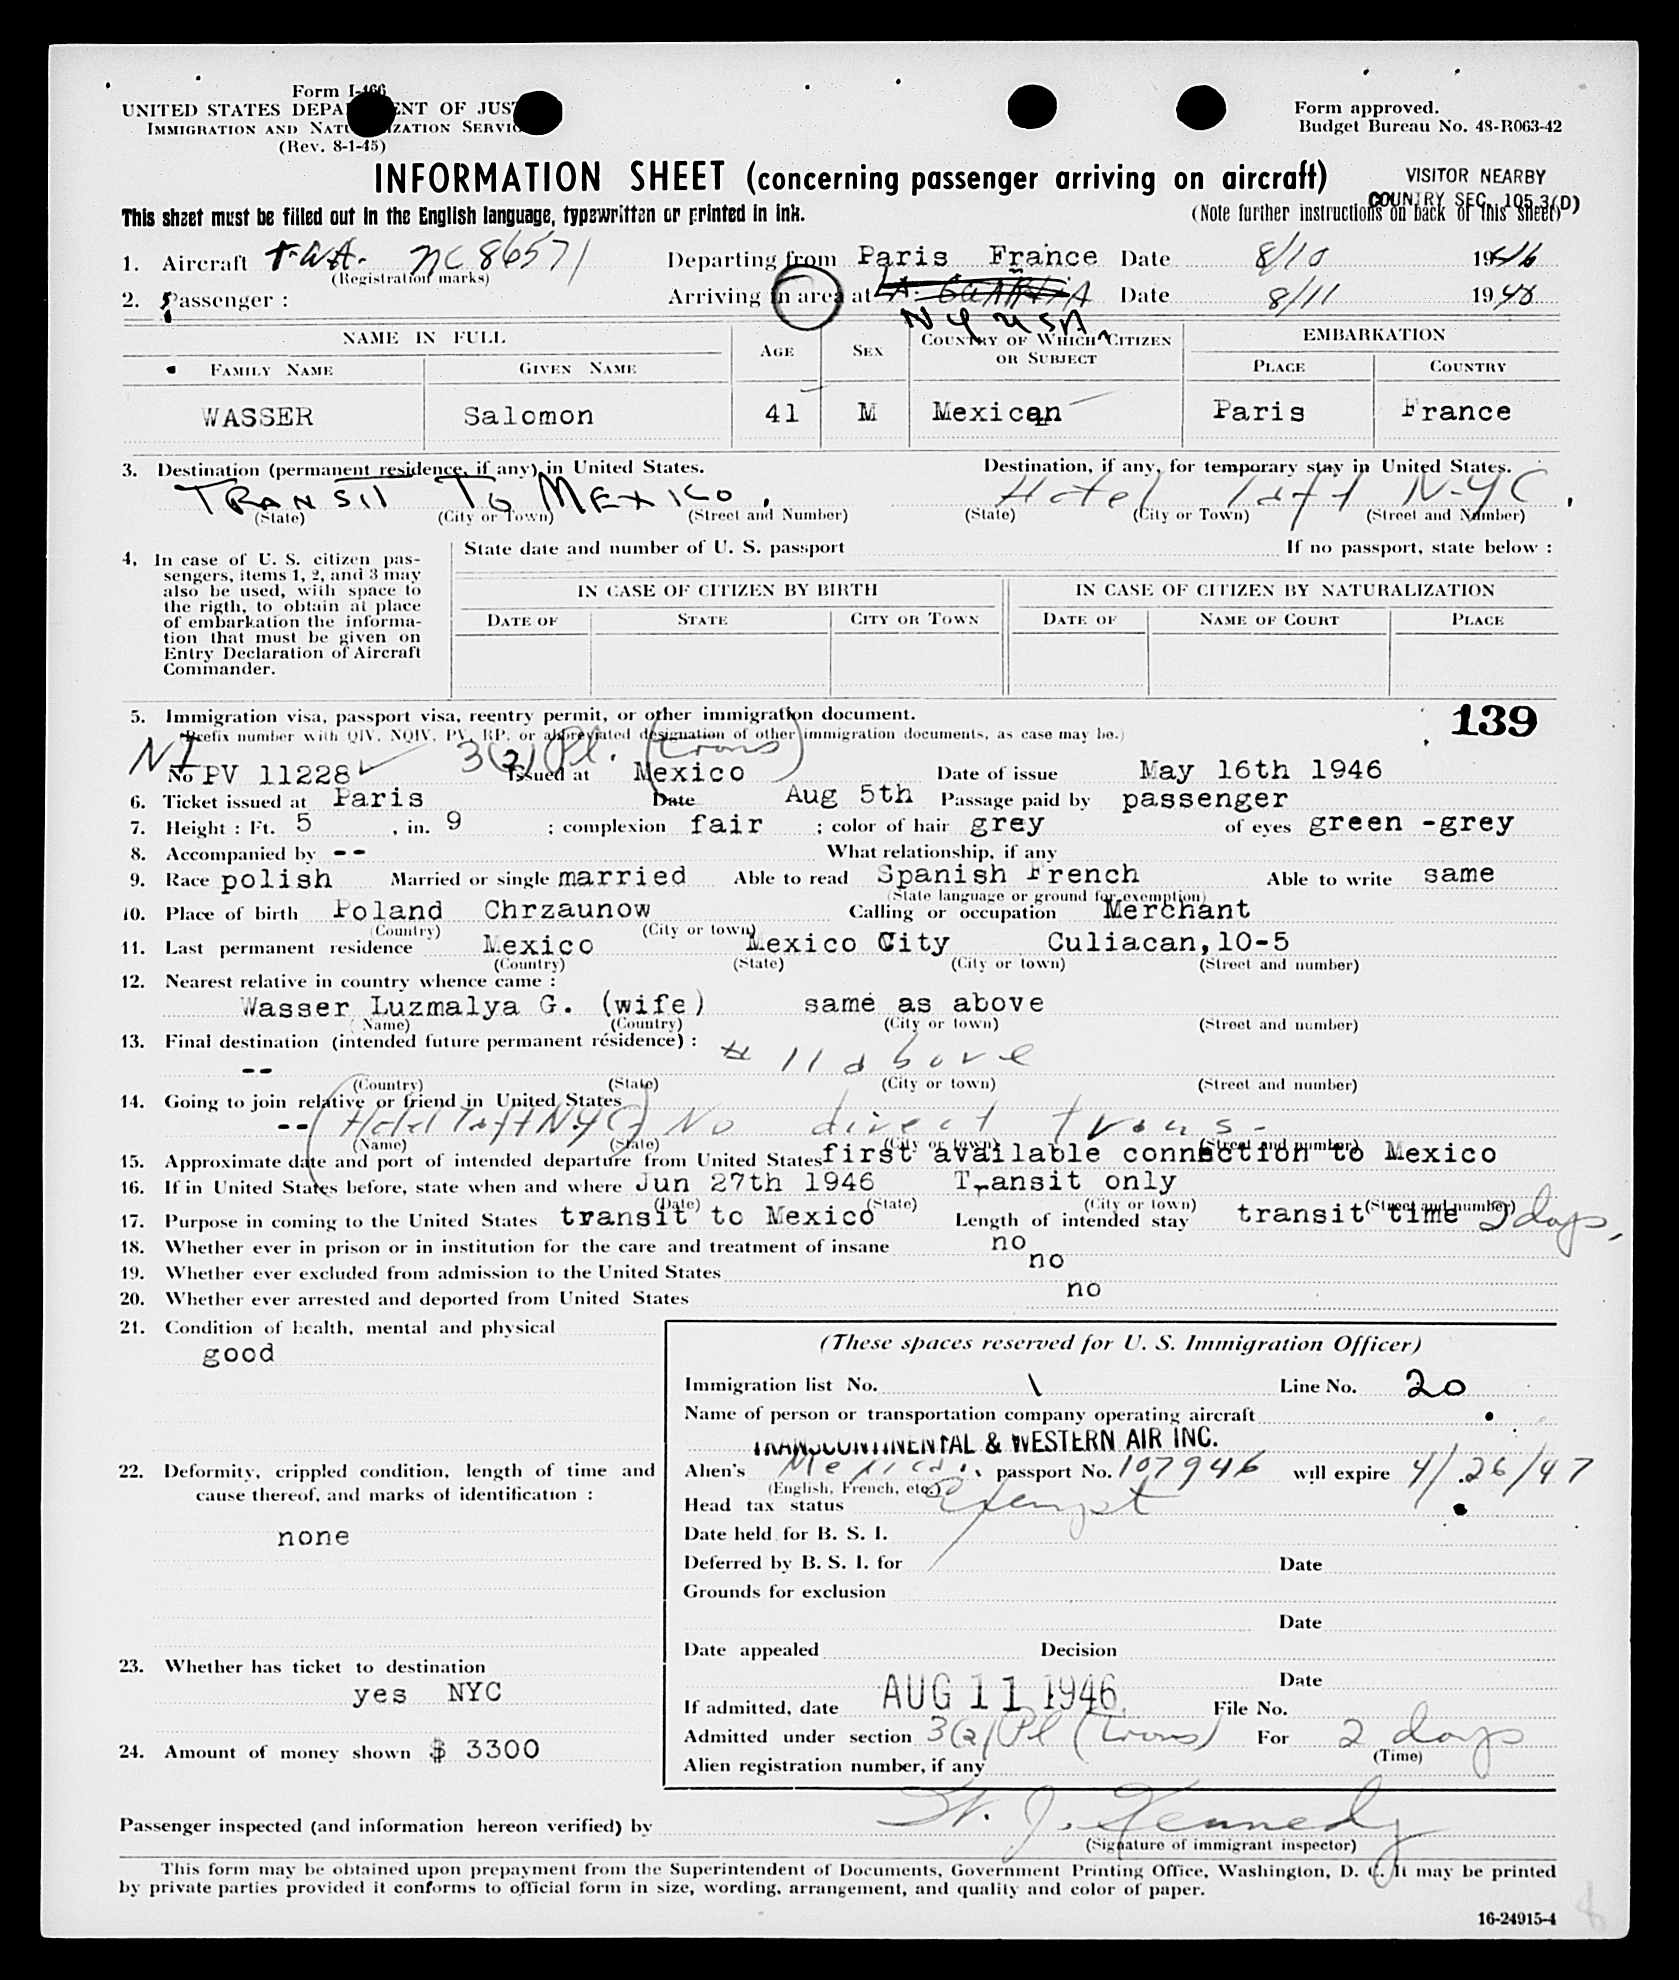 Form I-466
UNITED STATES DEPARTMENT OF JUSTICE
IMMIGRATION AND NATURALIZATION SERVICE
(Rev. 8-1-45)
Form approved.
Budget Bureau No. 48-R063-42
INFORMATION SHEET (concerning passenger arriving on aircraft)
VISITOR NEARBY
COUNTRY SEC. 105.3(D)
This sheet must be filled out in the English language, typewritten or printed in ink.
(Note further instructions on back of this sheet)
1. Aircraft T.W.A. NC 86571 Departing from Paris France Date 8/10 1946
(Registration marks)
2. Passenger : Arriving in area at LA GUARDIA Date 8/11 1946
N Y USA
NAME IN FULL AGE SEX COUNTRY OF WHICH CITIZEN OR SUBJECT EMBARKATION
FAMILY NAME GIVEN NAME PLACE COUNTRY
WASSER Salomon 41 M Mexican Paris France
3. Destination (permanent residence, if any) in United States. Destination, if any, for temporary stay in United States.
TRANSIT TO MEXICO. Hotel Taft NYC.
(State) (City or Town) (Street and Number) (State) (City or Town) (Street and Number)
4. In case of U. S. citizen pas-
sengers, items 1, 2, and 3 may
also be used, with space to
the rigth, to obtain at place
of embarkation the informa-
tion that must be given on
Entry Declaration of Aircraft
Commander.
State date and number of U. S. passport If no passport, state below :
IN CASE OF CITIZEN BY BIRTH IN CASE OF CITIZEN BY NATURALIZATION
DATE OF STATE CITY OR TOWN DATE OF NAME OF COURT PLACE
5. Immigration visa, passport visa, reentry permit, or other immigration document.
139
(Prefix number with QIV, NQIV, PV, RP, or abbreviated designation of other immigration documents, as case may be.)
NI 3(2) Pl. (trans)
No PV 11228 Issued at Mexico Date of issue May 16th 1946
6. Ticket issued at Paris Date Aug 5th Passage paid by passenger
7. Height : Ft. 5 , in. 9 ; complexion fair ; color of hair grey of eyes green -grey
8. Accompanied by -- What relationship, if any
9. Race polish Married or single married Able to read Spanish French Able to write same
(State language or ground for exemption)
10. Place of birth Poland Chrzaunow Calling or occupation Merchant
(Country) (City or town)
11. Last permanent residence Mexico Mexico City Culiacan,10-5
(Country) (State) (City or town) (Street and number)
12. Nearest relative in country whence came :
Wasser Luzmalya G. (wife) same as above
(Name) (Country) (City or town) (Street and number)
13. Final destination (intended future permanent résidence) :
-- # 11 above
(Country) (State) (City or town) (Street and number)
14. Going to join relative or friend in United States
-- (Hotel Taft NYC) No direct trans-
(Name) (State) (City or town) (Street and number)
15. Approximate date and port of intended departure from United States first available connection to Mexico
16. If in United States before, state when and where Jun 27th 1946 Transit only
(Date) (State) (City or town) (Street and number)
17. Purpose in coming to the United States transit to Mexico Length of intended stay transit time 2 days,
18. Whether ever in prison or in institution for the care and treatment of insane no
19. Whether ever excluded from admission to the United States no
20. Whether ever arrested and deported from United States no
21. Condition of health, mental and physical
good
22. Deformity, crippled condition, length of time and
cause thereof, and marks of identification :
none
23. Whether has ticket to destination
yes NYC
24. Amount of money shown $ 3300
(These spaces reserved for U. S. Immigration Officer)
Immigration list No. 1 Line No. 20
Name of person or transportation company operating aircraft
TRANSCONTINENTAL & WESTERN AIR INC.
Alien's Mexican passport No. 107946 will expire 4/26/47
(English, French, etc.)
Head tax status Exempt
Date held for B. S. I.
Deferred by B. S. I. for Date
Grounds for exclusion
Date
Date appealed Decision
Date
If admitted, date AUG 11 1946 File No.
Admitted under section 3(2) Pl (trans) For 2 days
(Time)
Alien registration number, if any
Passenger inspected (and information hereon verified) by W. J. Kennedy
(Signature of immigrant inspector)
This form may be obtained upon prepayment from the Superintendent of Documents, Government Printing Office, Washington, D. C. It may be printed
by private parties provided it conforms to official form in size, wording, arrangement, and quality and color of paper.
16-24915-4